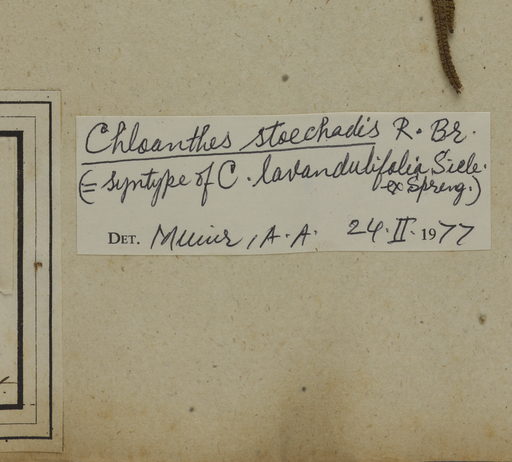 Chloanthes stoechadis R. Br.
(= syntype of C. lavandulifolia Sieb.
ex Spreng.)
DET. Munir, A.A. 24.II.1977